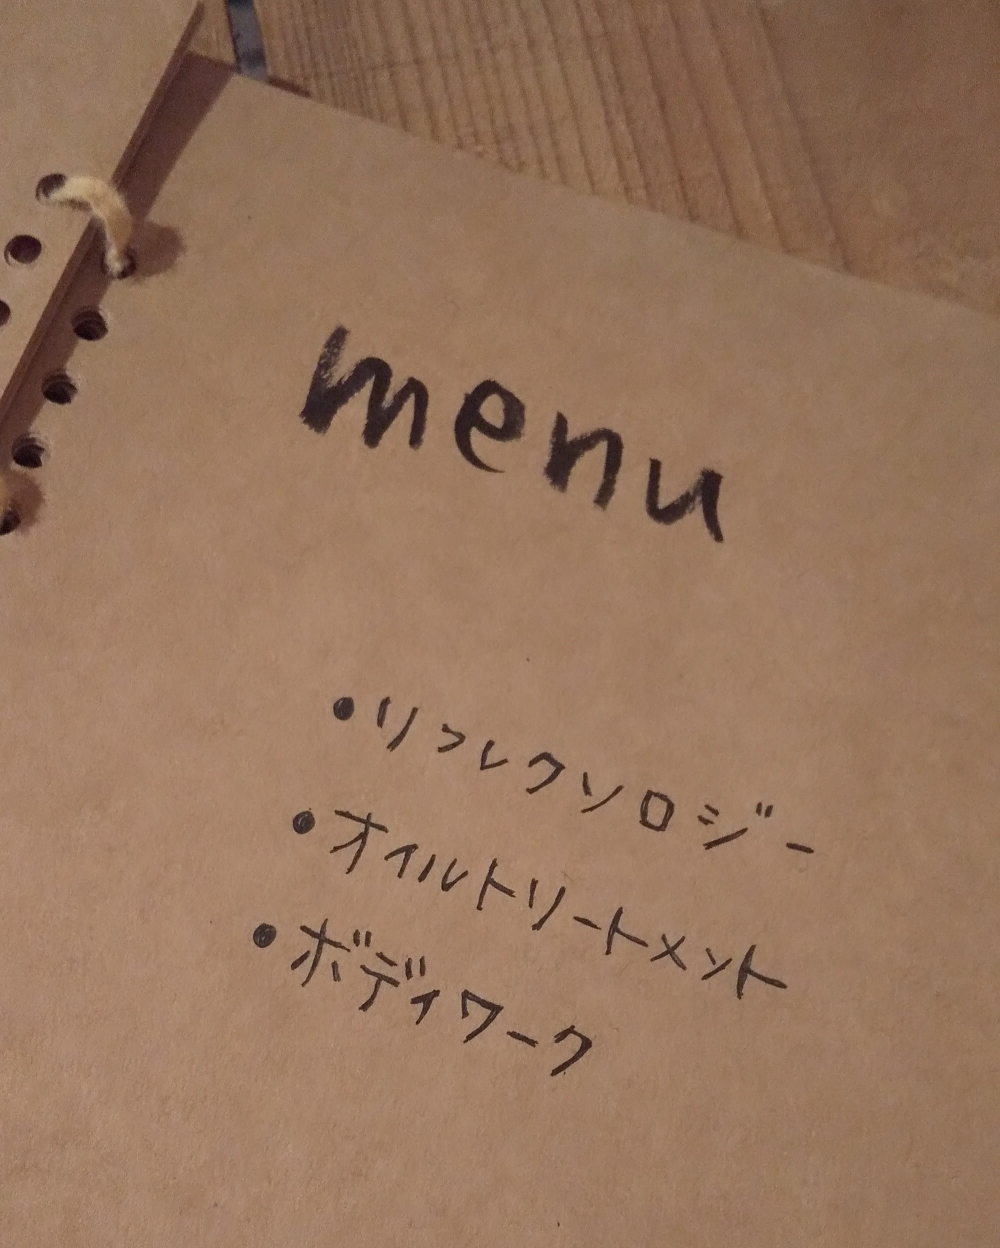 menu
•リフレクソロジー
•オイルトリートメント
•ボディワーク